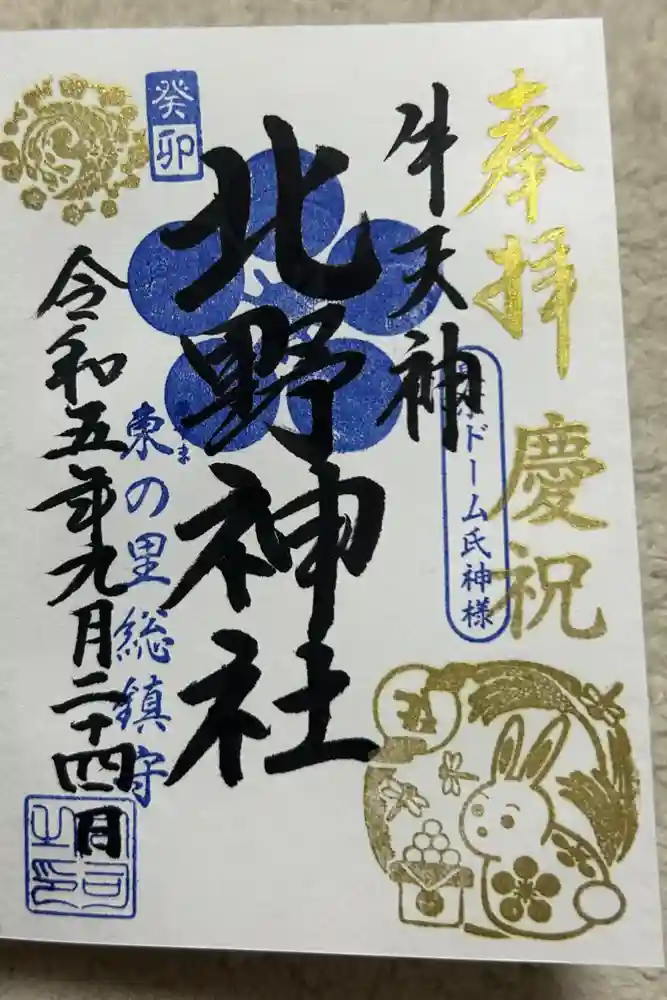 奉拝
慶祝
牛天神
ドーム氏神様
北野神社
癸卯
東の里総鎮守
令和五年九月二十四日